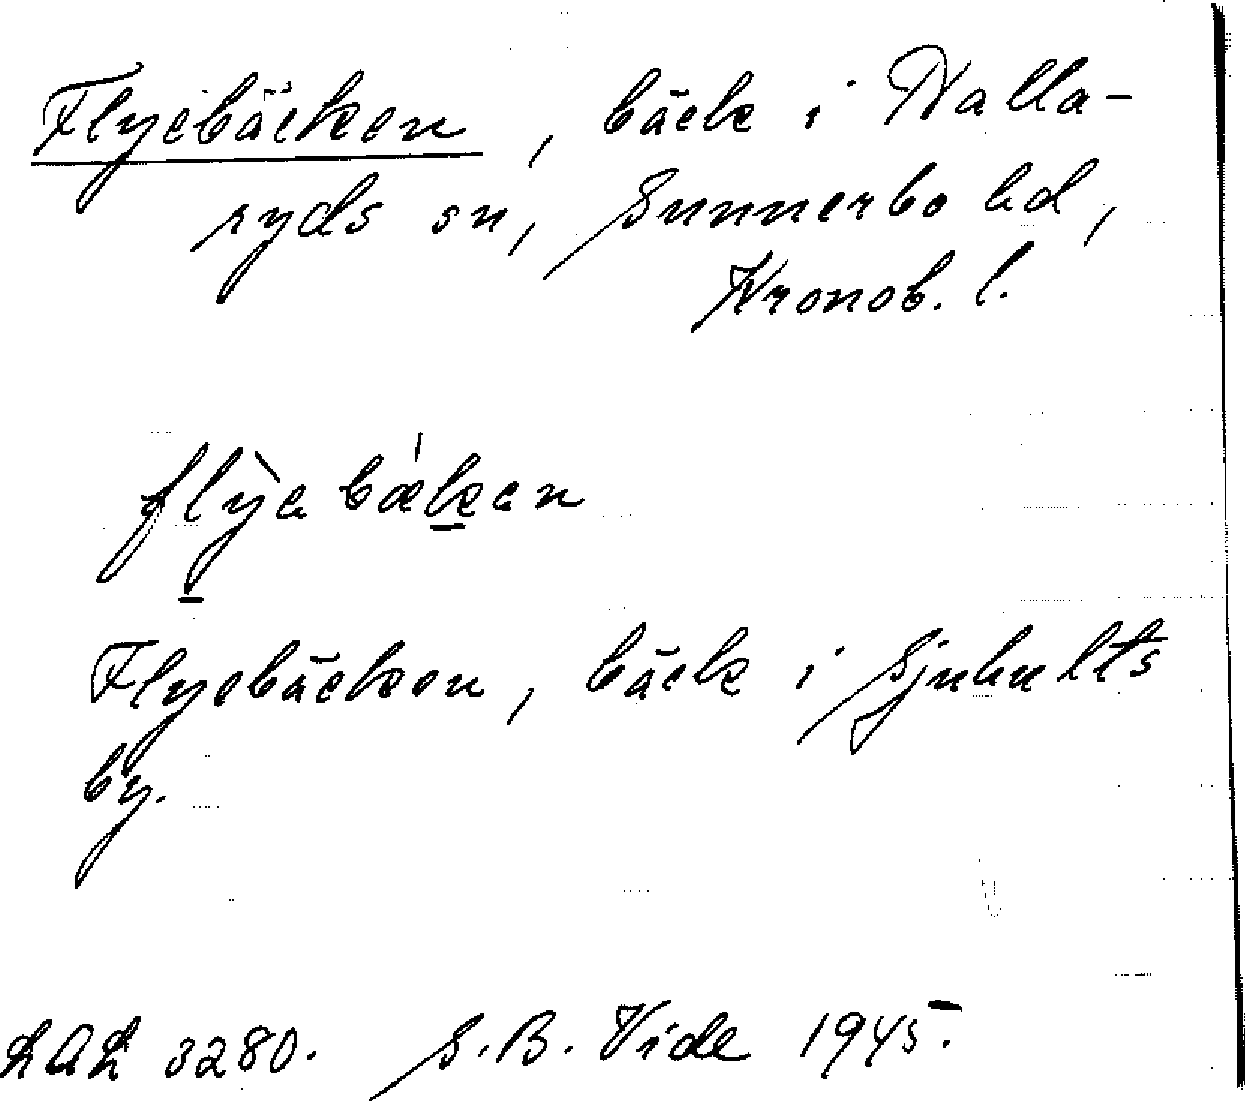 Flyebäcken, bäck i Halla-
ryds sn, Sunnerbo hd,
Kronob. l.
flỳebækan
Flyebäcken, bäck i Sjuhults
by.
LAL 3280. S.B. Vide 1945.